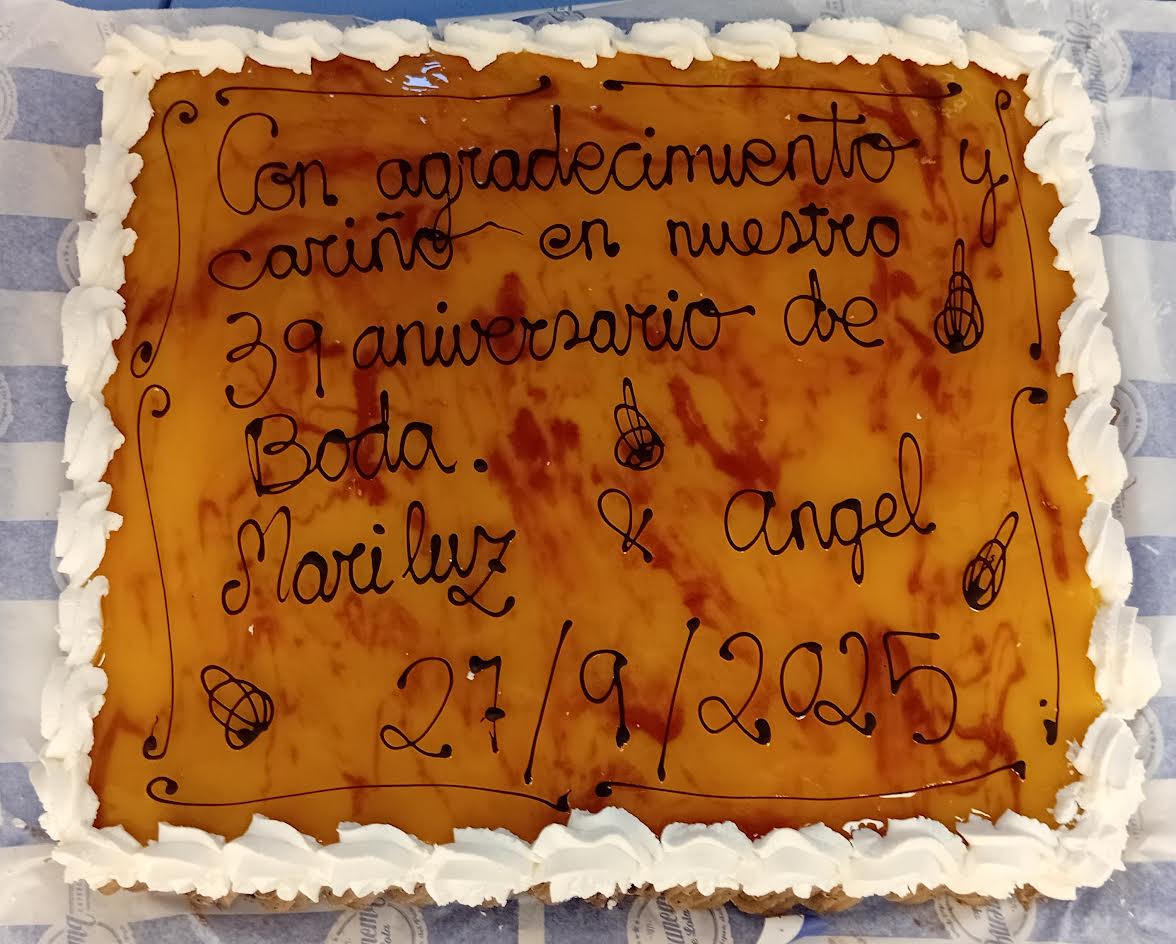 Con agradecimiento y
cariño en nuestro
39 aniversario de
Boda.
Mariluz & Angel
27/9/2025